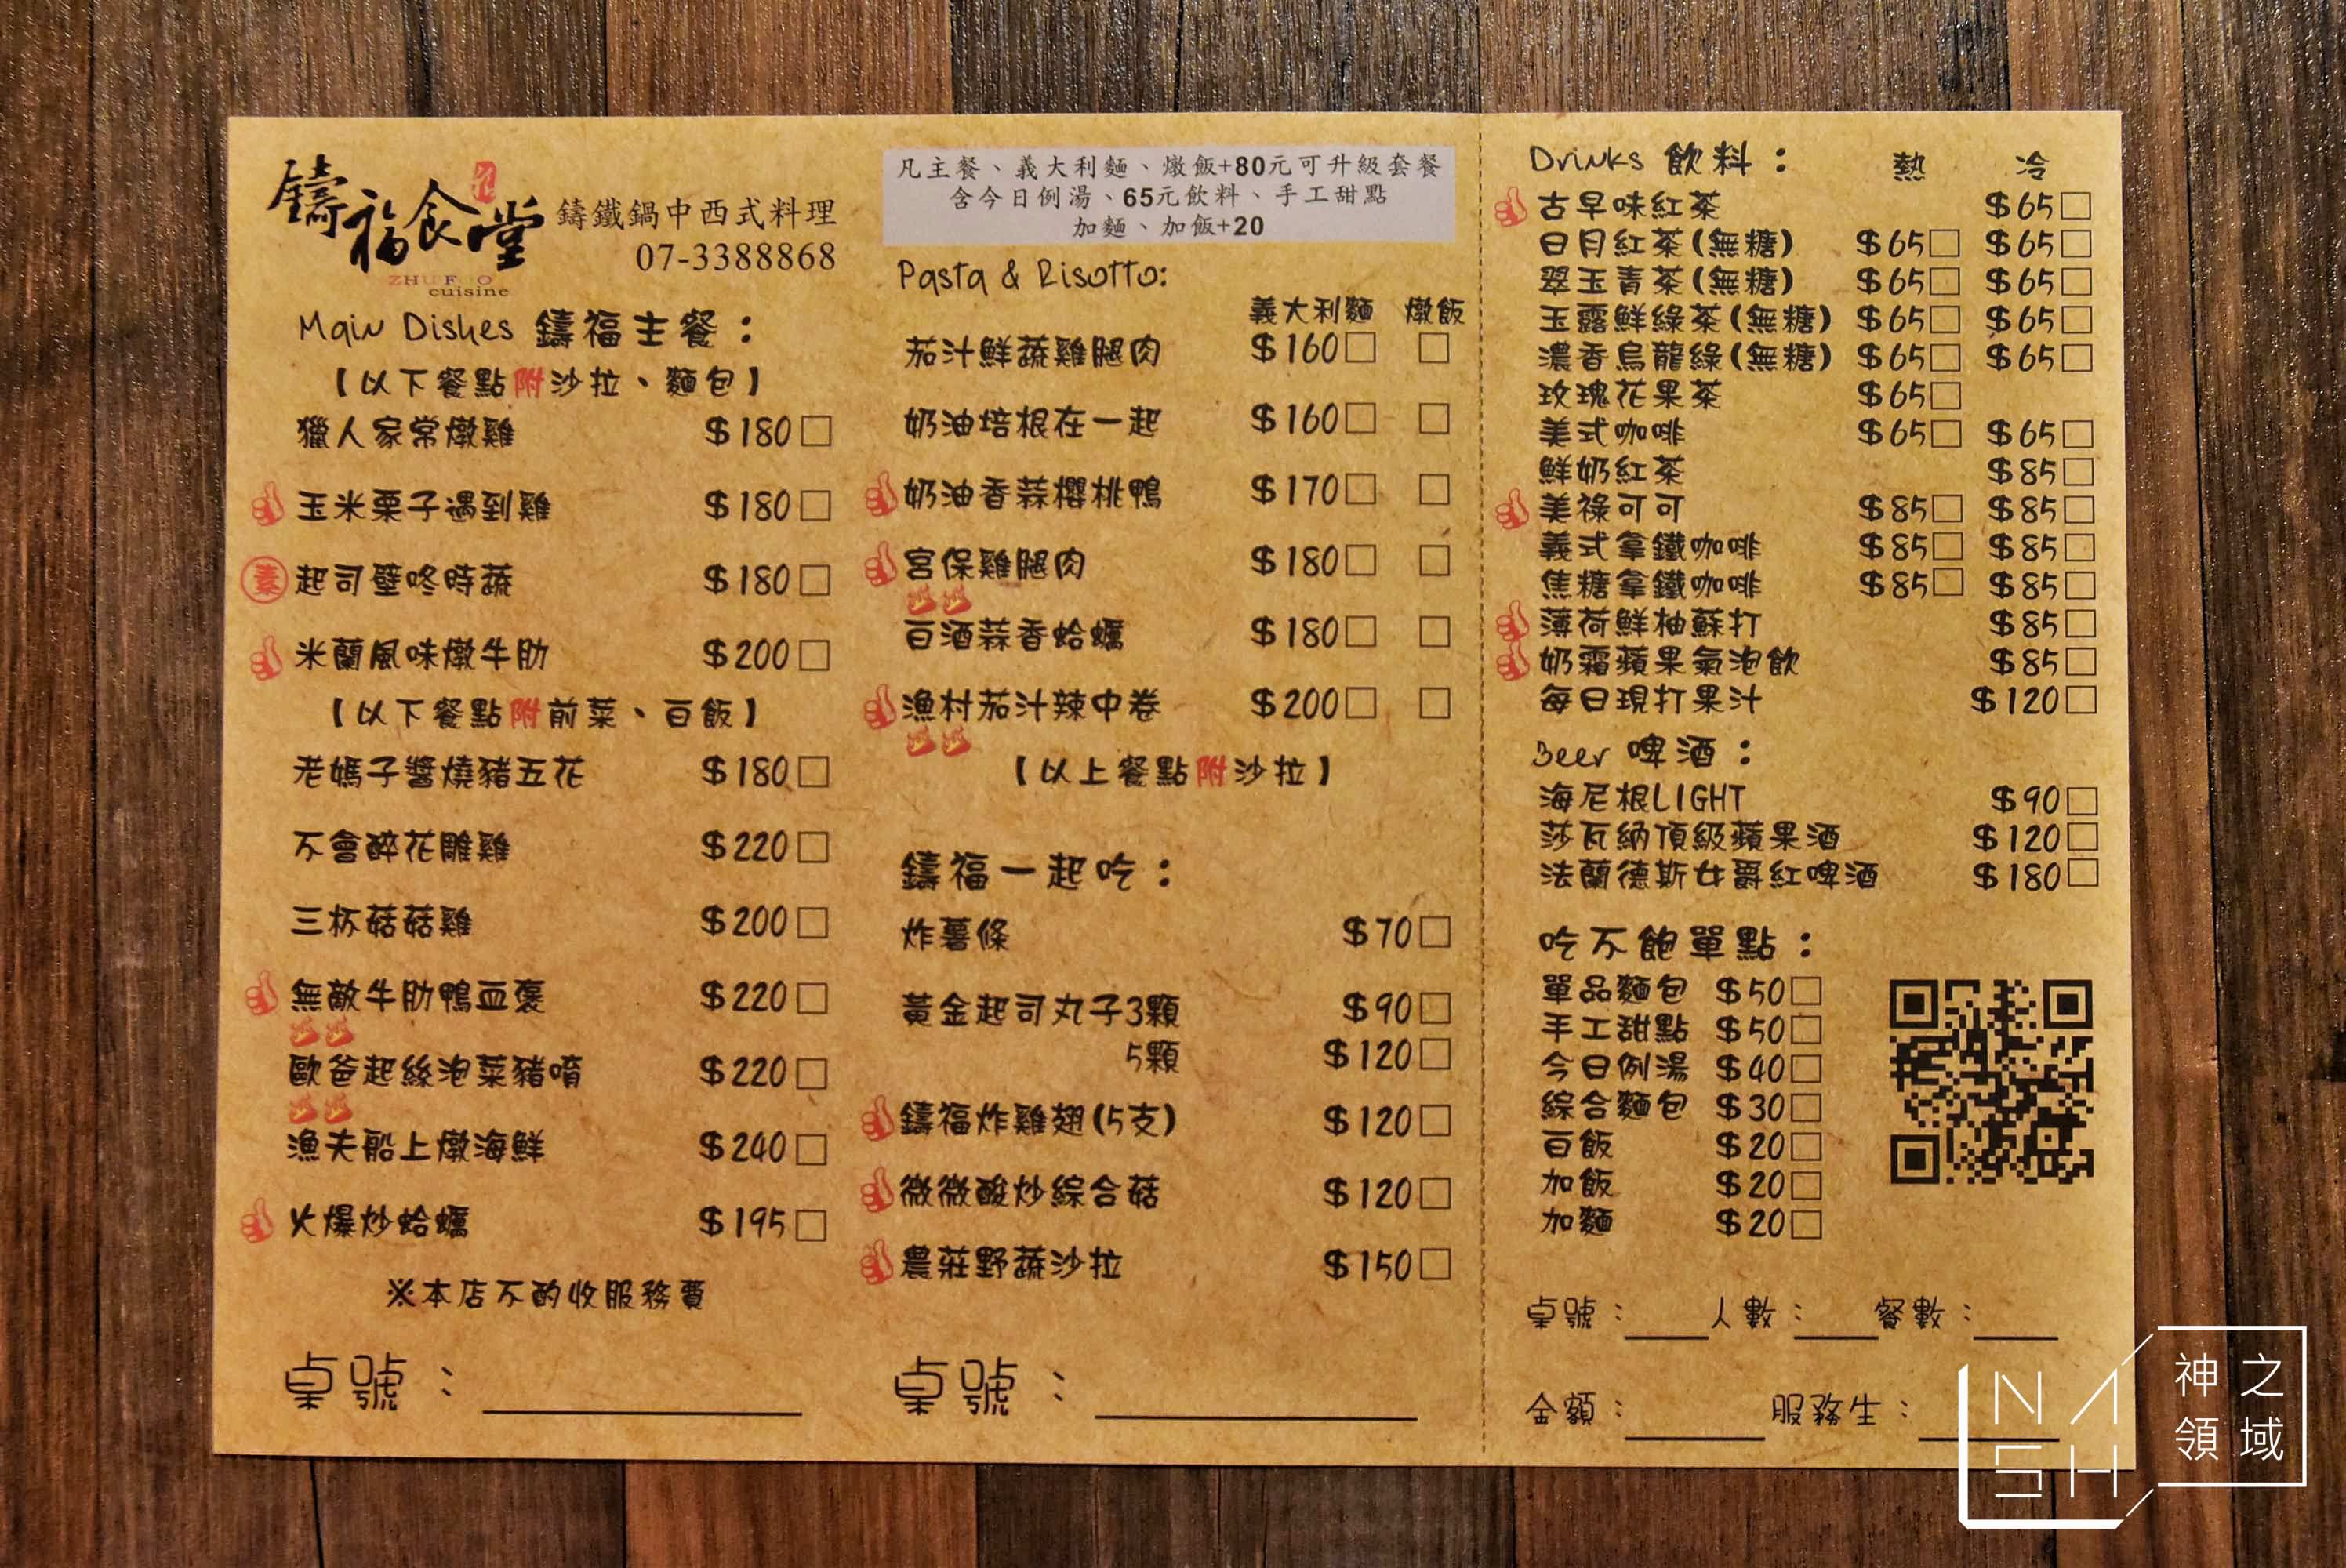 鑄福食堂
ZHU FU
cuisine
鑄鐵鍋中西式料理
07-3388868
Main Dishes 鑄福主餐：
【以下餐點附沙拉、麵包】
獵人家常燉雞 $180□
玉米栗子遇到雞 $180□
素 起司壁咚時蔬 $180□
米蘭風味燉牛肋 $200□
【以下餐點附前菜、白飯】
老媽子醬燒豬五花 $180□
不會醉花雕雞 $220□
三杯菇菇雞 $200□
無敵牛肋鴨血褒 $220□
歐爸起絲泡菜豬唷 $220□
漁夫船上燉海鮮 $240□
火爆炒蛤蠣 $195□
※本店不酌收服務費
桌號：
凡主餐、義大利麵、燉飯+80元可升級套餐
含今日例湯、65元飲料、手工甜點
加麵、加飯+20
Pasta & Risotto:
義大利麵 燉飯
茄汁鮮蔬雞腿肉 $160□ □
奶油培根在一起 $160□ □
奶油香蒜櫻桃鴨 $170□ □
宮保雞腿肉 $180□ □
白酒蒜香蛤蠣 $180□ □
漁村茄汁辣中卷 $200□ □
【以上餐點附沙拉】
鑄福一起吃：
炸薯條 $70□
黃金起司丸子3顆 $90□
5顆 $120□
鑄福炸雞翅(5支) $120□
微微酸炒綜合菇 $120□
農莊野蔬沙拉 $150□
桌號：
Drinks 飲料： 熱 冷
古早味紅茶 $65□
日月紅茶(無糖) $65□ $65□
翠玉青茶(無糖) $65□ $65□
玉露鮮綠茶(無糖) $65□ $65□
濃香烏龍綠(無糖) $65□ $65□
玫瑰花果茶 $65□
美式咖啡 $65□ $65□
鮮奶紅茶 $85□
美祿可可 $85□ $85□
義式拿鐵咖啡 $85□ $85□
焦糖拿鐵咖啡 $85□ $85□
薄荷鮮柚蘇打 $85□
奶霜蘋果氣泡飲 $85□
每日現打果汁 $120□
Beer 啤酒：
海尼根LIGHT $90□
莎瓦納頂級蘋果酒 $120□
法蘭德斯女爵紅啤酒 $180□
吃不飽單點：
單品麵包 $50□
手工甜點 $50□
今日例湯 $40□
綜合麵包 $30□
白飯 $20□
加飯 $20□
加麵 $20□
桌號： 人數： 餐數：
金額： 服務生：
NASH
神之
領域